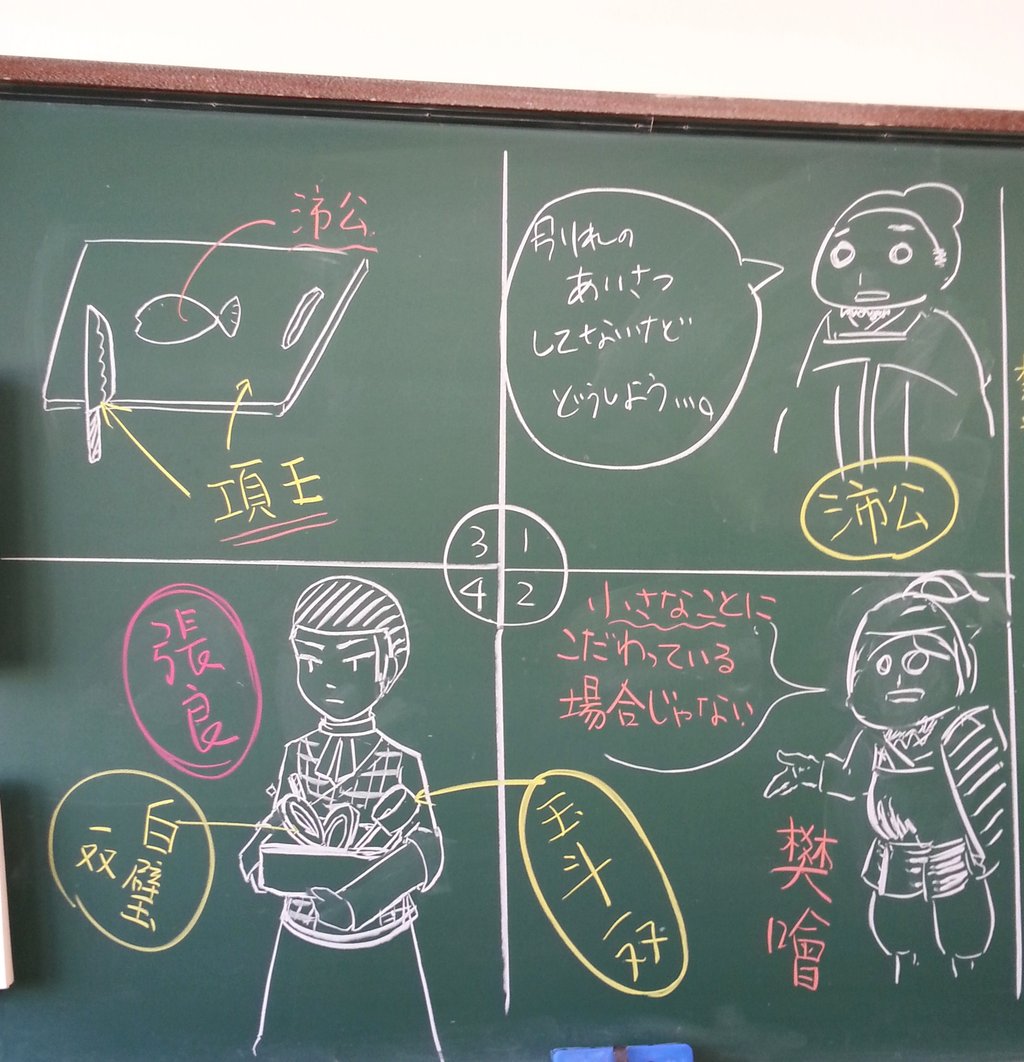 別れの
あいさつ
してないけど
どうしよう…。
沛公
小さなことに
こだわっている
場合じゃない
樊噲
沛公
項王
張良
白璧
一双
玉斗一双
3 1
4 2